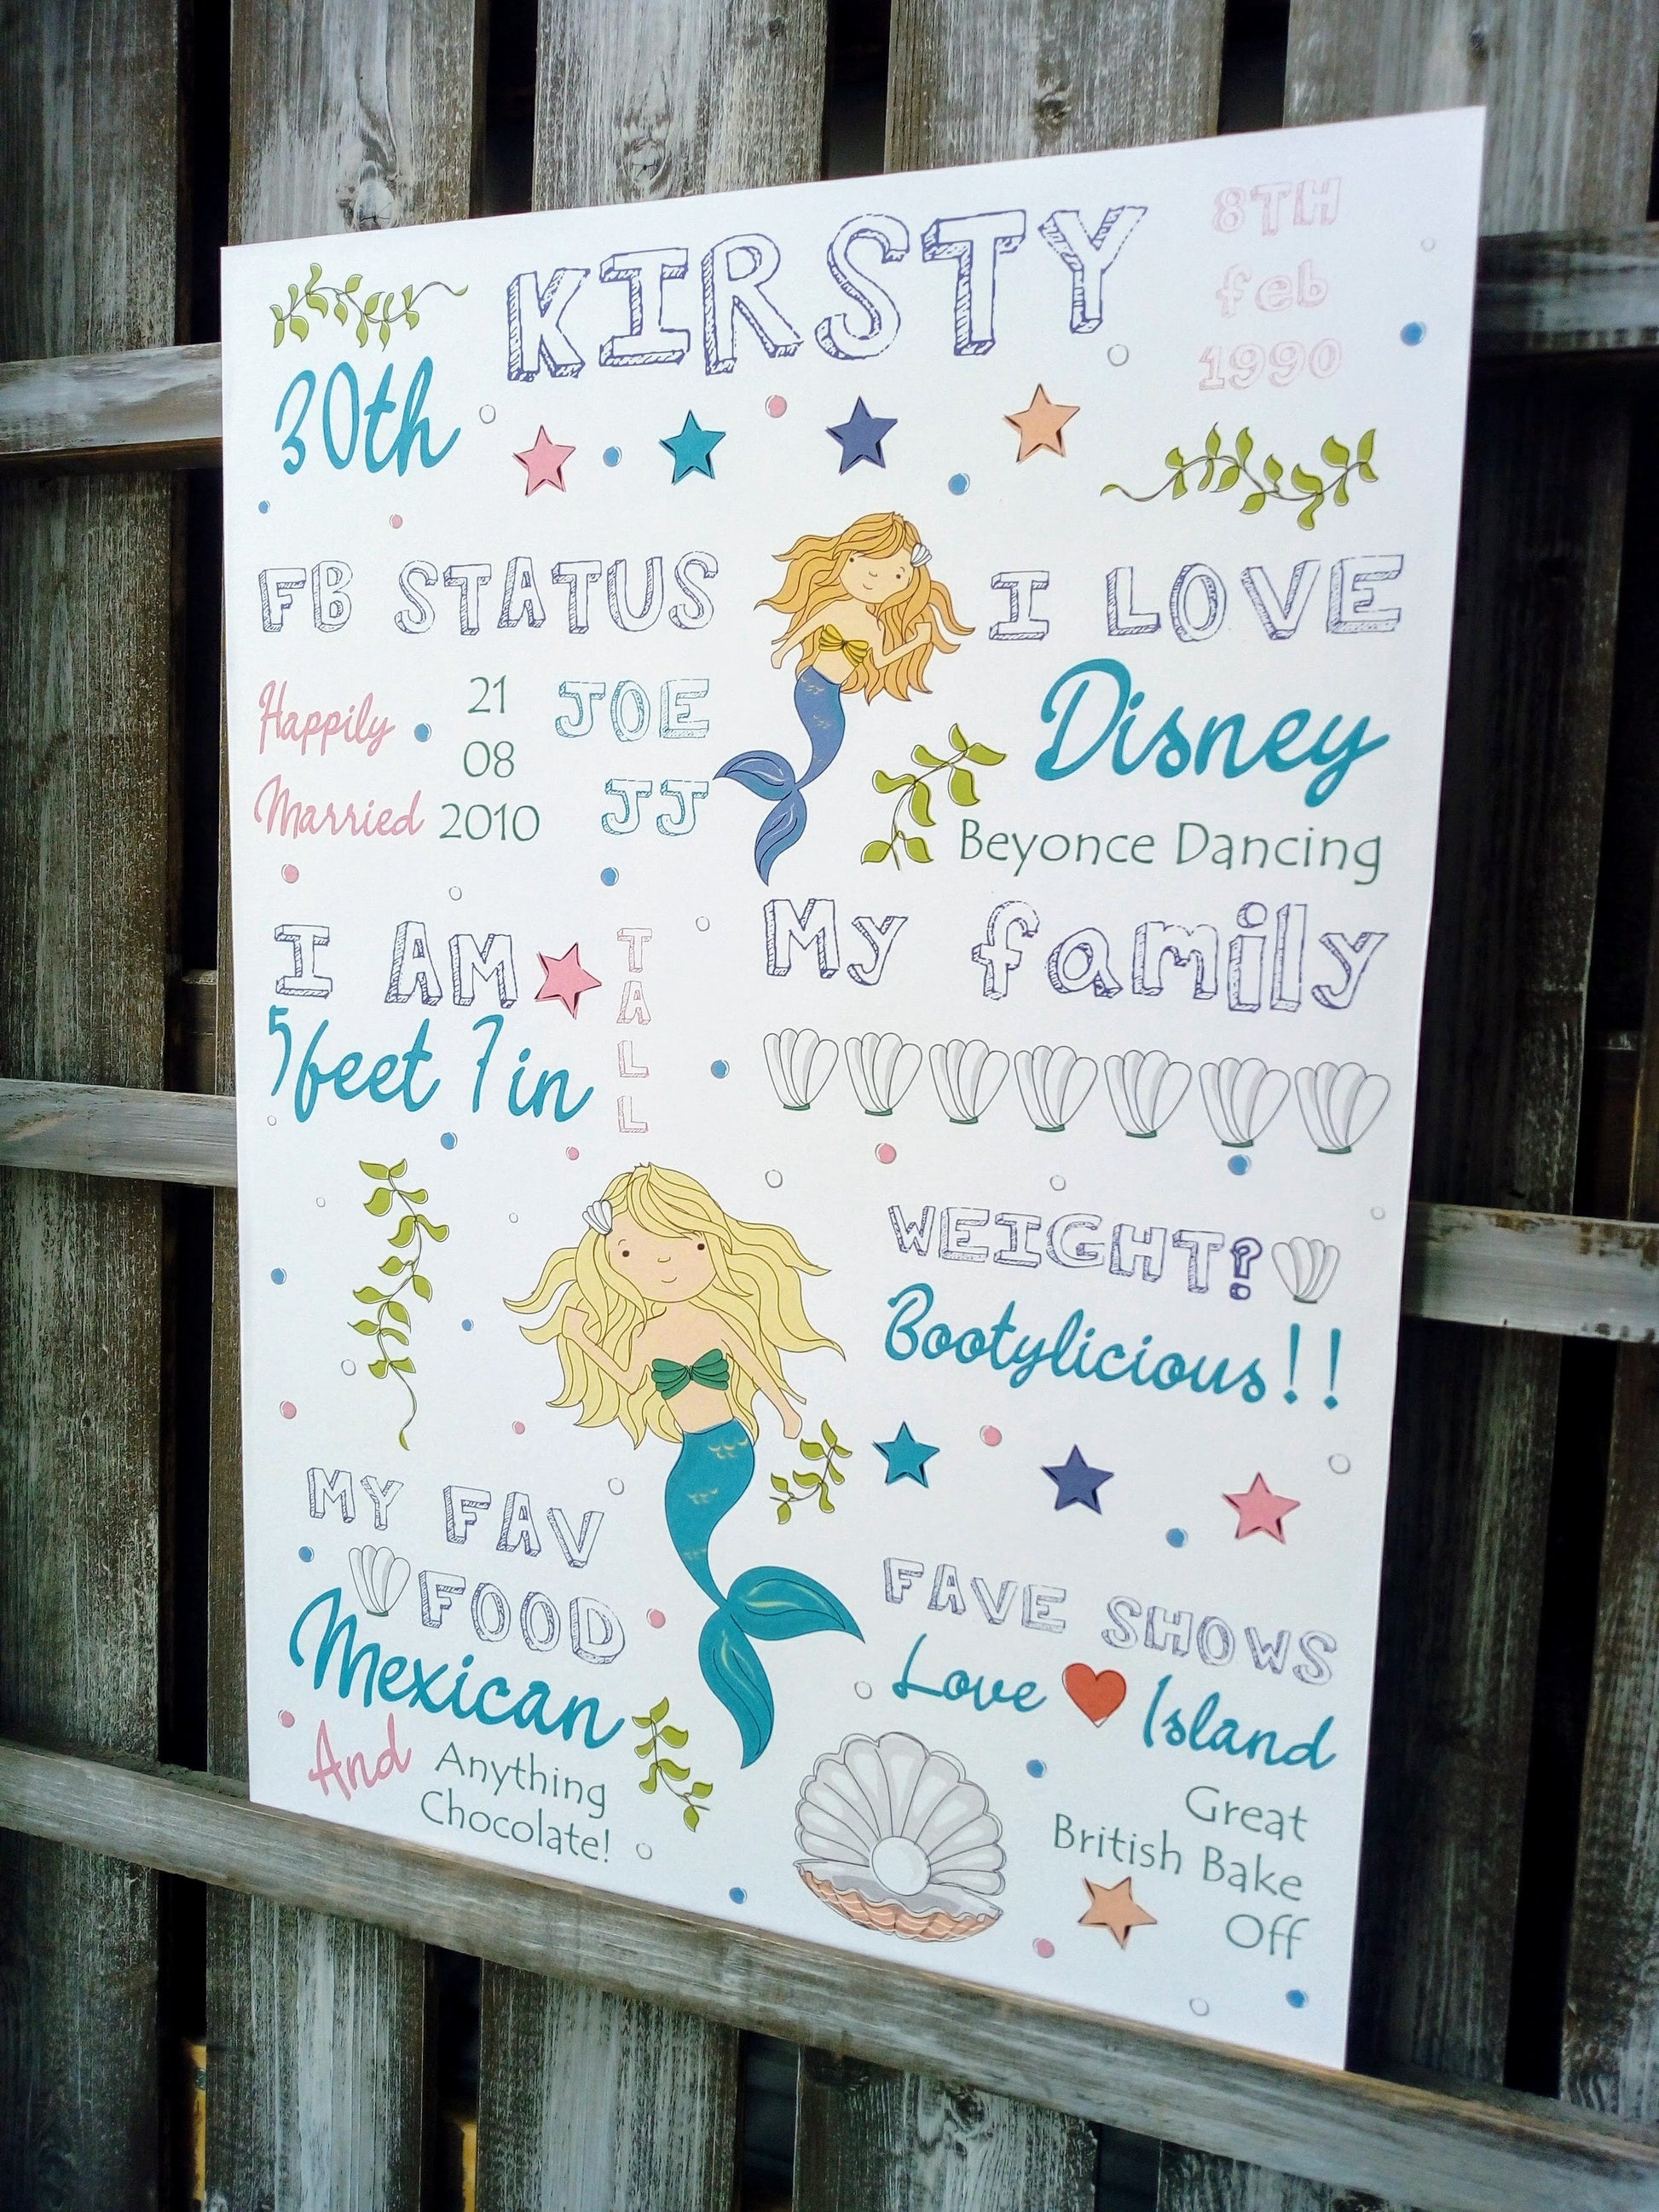 KIRSTY
8TH
feb
1990
30th
FB STATUS
Happily
Married
21
08
2010
JOE
JJ
I LOVE
Disney
Beyonce Dancing
I AM
TALL
5feet 7in
My family
WEIGHT?
Bootylicious!!
MY FAV
FOOD
Mexican
And
Anything
Chocolate!
FAVE SHOWS
Love Island
Great
British Bake
Off